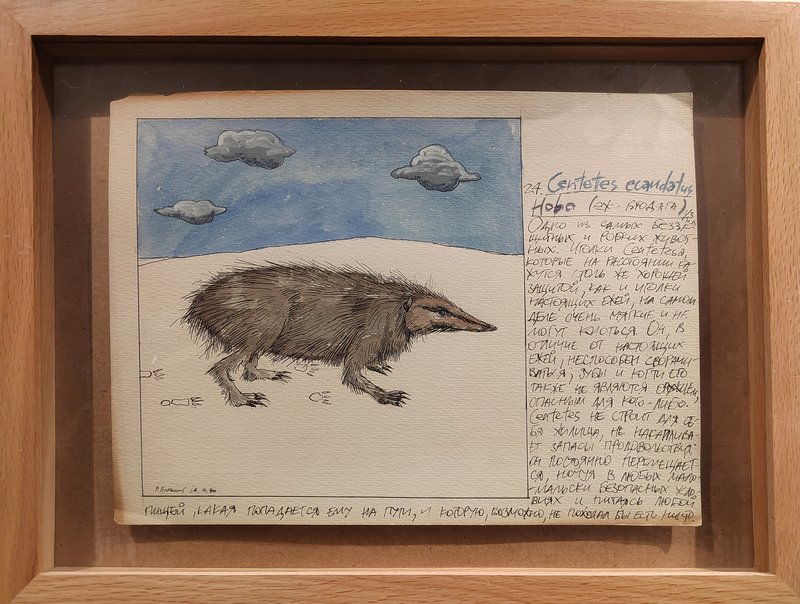 24. Centetes ecaudatus
Нова (еж-бродяга)
Одно из самых безза-
щитных и робких живот-
ных. Иголки Centetesa,
которые на расстоянии ка-
жутся столь же хорошей
защитой, как и иголки
настоящих ежей, на самом
деле очень мягкие и не
могут колоться. Он, в
отличие от настоящих
ежей, неспособен сворачи-
ваться, зубы и когти его
также не являются
опасным для кого-либо.
Centetes не строит для се-
бя жилища, не накаплива-
ет запасы продовольствия
он постоянно перемещает-
ся, ночуя в любых мало-
мальски безопасных усло-
виях и питаясь любой
пищей, какая попадается ему на пути, и которую, возможно, не пожелал бы есть никто.